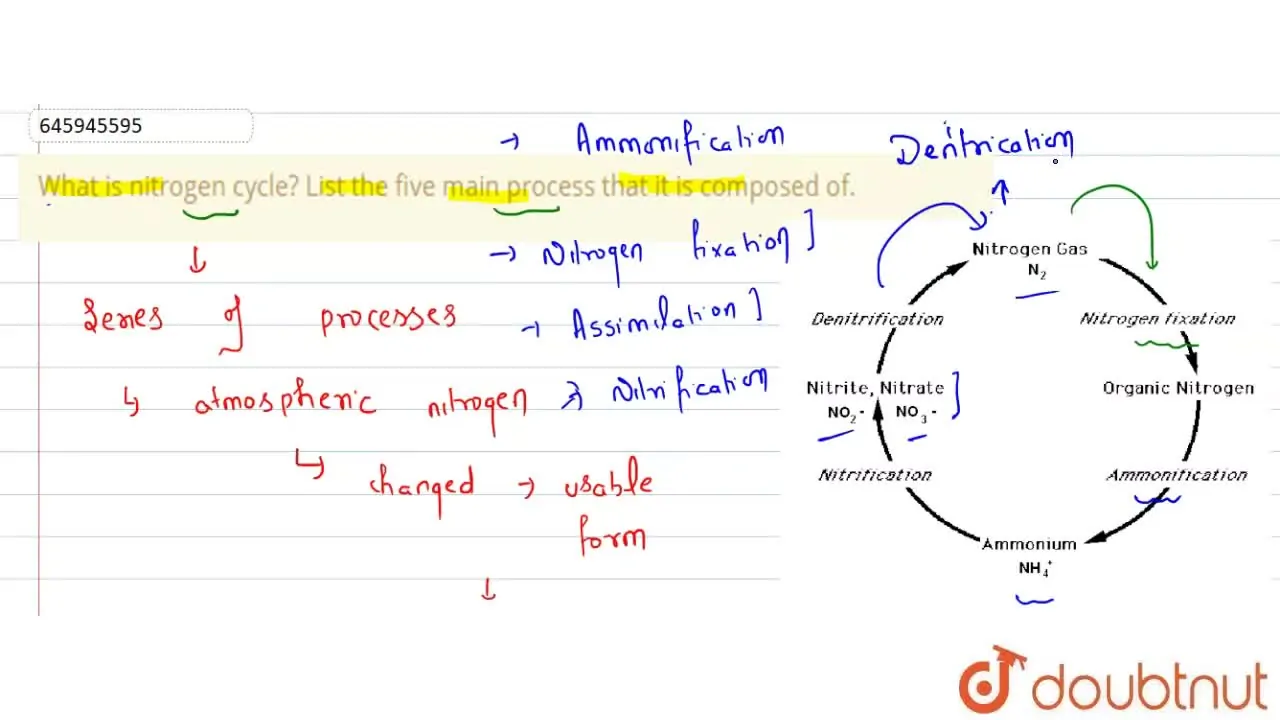 645945595
→ Ammonification
Denitrication
What is nitrogen cycle? List the five main process that it is composed of.
→ Nitrogen fixation ]
Series of processes
→ Assimilation ]
↳ atmospheric nitrogen
→ Nitrification
↳ changed → usable
form
Nitrogen Gas
N₂
Denitrification
Nitrogen fixation
Nitrite, Nitrate ]
NO₂- NO₃-
Organic Nitrogen
Nitrification
Ammonification
Ammonium
NH₄⁺
doubtnut